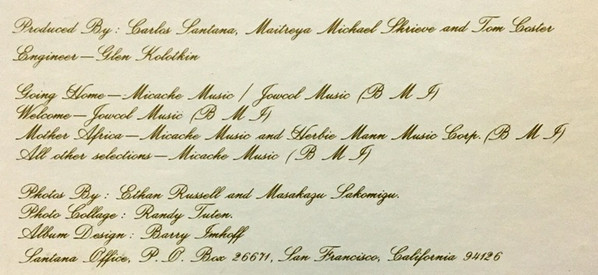 Produced By: Carlos Santana, Maitreya Michael Shrieve and Tom Coster
Engineer—Glen Kolotkin
Going Home—Micache Music / Jowcol Music (B M I)
Welcome—Jowcol Music (B M I)
Mother Africa—Micache Music and Herbie Mann Music Corp. (B M I)
All other selections—Micache Music (B M I)
Photos By: Ethan Russell and Masakazu Sakomizu.
Photo Collage: Randy Tuten.
Album Design: Barry Imhoff
Santana Office, P. O. Box 26671, San Francisco, California 94126